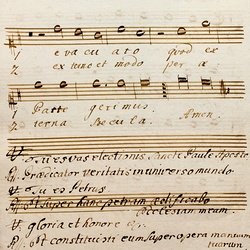 1 evacuato quod ex
2 ex tunc et modo per
1 Patre gerimus.
2 terna secula. Amen.
V. Tu es vas electionis Sancte Paule Aposto
R. Prædicator veritatis in universo mundo
V. Tu es Petrus
R. et super hanc petram ædificabo
ecclesiam meam.
V. gloria et honore
R. et constituisti eum super opera manuum
tuarum